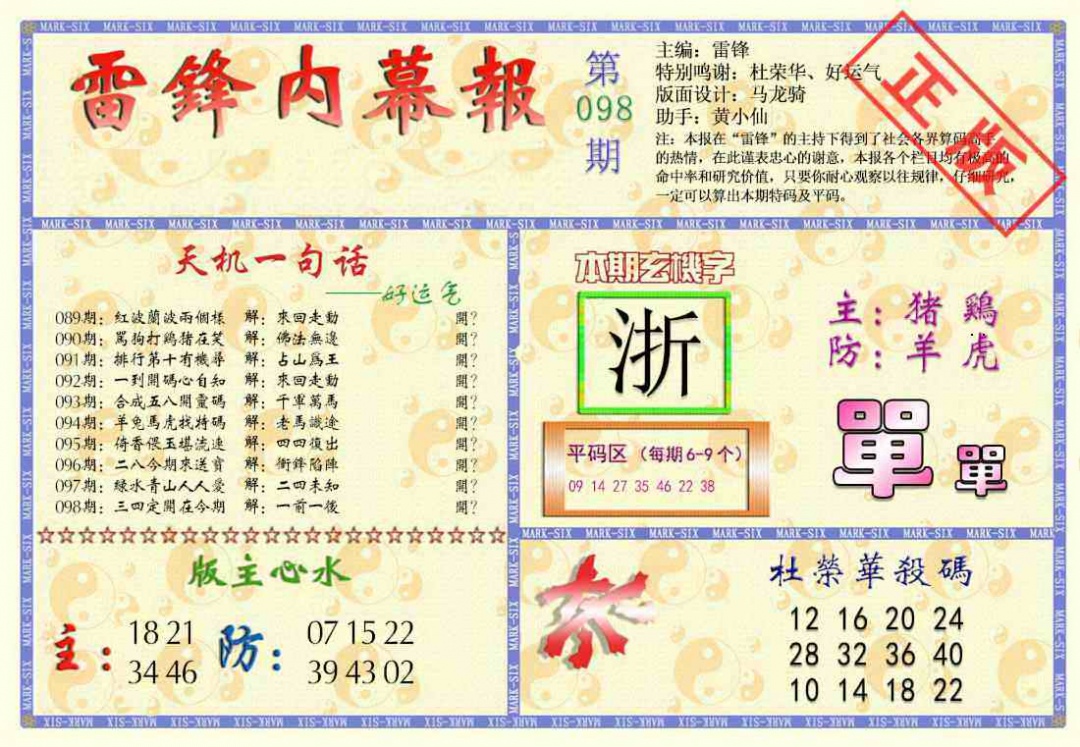 MARK-SIX MARK-SIX MARK-SIX MARK-SIX MARK-SIX MARK-SIX MARK-SIX MARK-SIX MARK-SIX MARK-SIX MARK-SIX
雷鋒内幕報
第
098
期
主编：雷锋
特别鸣谢：杜荣华、好运气
版面设计：马龙骑
助手：黄小仙
正版
注：本报在“雷锋”的主持下得到了社会各界算码高手
的热情，在此谨表忠心的谢意，本报各个栏目均有极高的
命中率和研究价值，只要你耐心观察以往规律，仔细研究，
一定可以算出本期特码及平码。
天机一句话
——好运气
089期：紅波蘭波兩個樣 解：來回走動 開？
090期：罵狗打鸡猪在笑 解：佛法無邊 開？
091期：排行第十有機尋 解：占山爲王 開？
092期：一到開碼心自知 解：來回走動 開？
093期：合成五八開靈碼 解：千軍萬馬 開？
094期：羊兔馬虎找特碼 解：老馬識途 開？
095期：倚香偎玉堪流連 解：四四復出 開？
096期：二八今期來送寶 解：衝鋒陷陣 開？
097期：緑水青山人人愛 解：二四未知 開？
098期：三四定開在今期 解：一前一後 開？
本期玄機字
浙
主：猪 鷄
防：羊 虎
平码区（每期6-9个）
09 14 27 35 46 22 38
單 單
版主心水
主： 18 21
34 46
防： 07 15 22
39 43 02
杜榮華殺碼
12 16 20 24
28 32 36 40
10 14 18 22